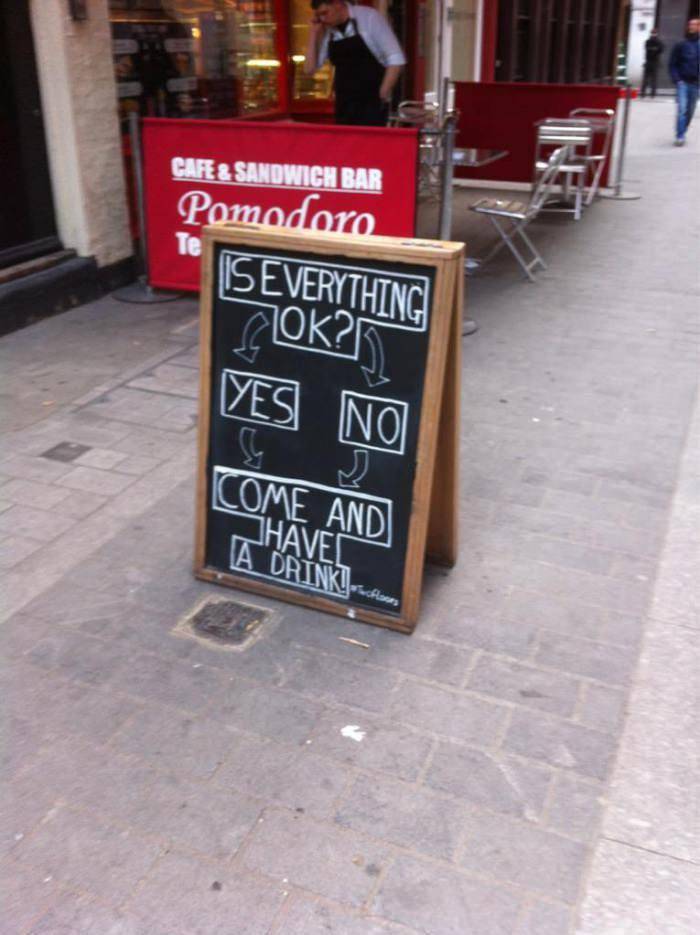 CAFE & SANDWICH BAR
Pomodoro
Te
IS EVERYTHING
OK?
YES
NO
COME AND
HAVE
A DRINK!
#Twofloors